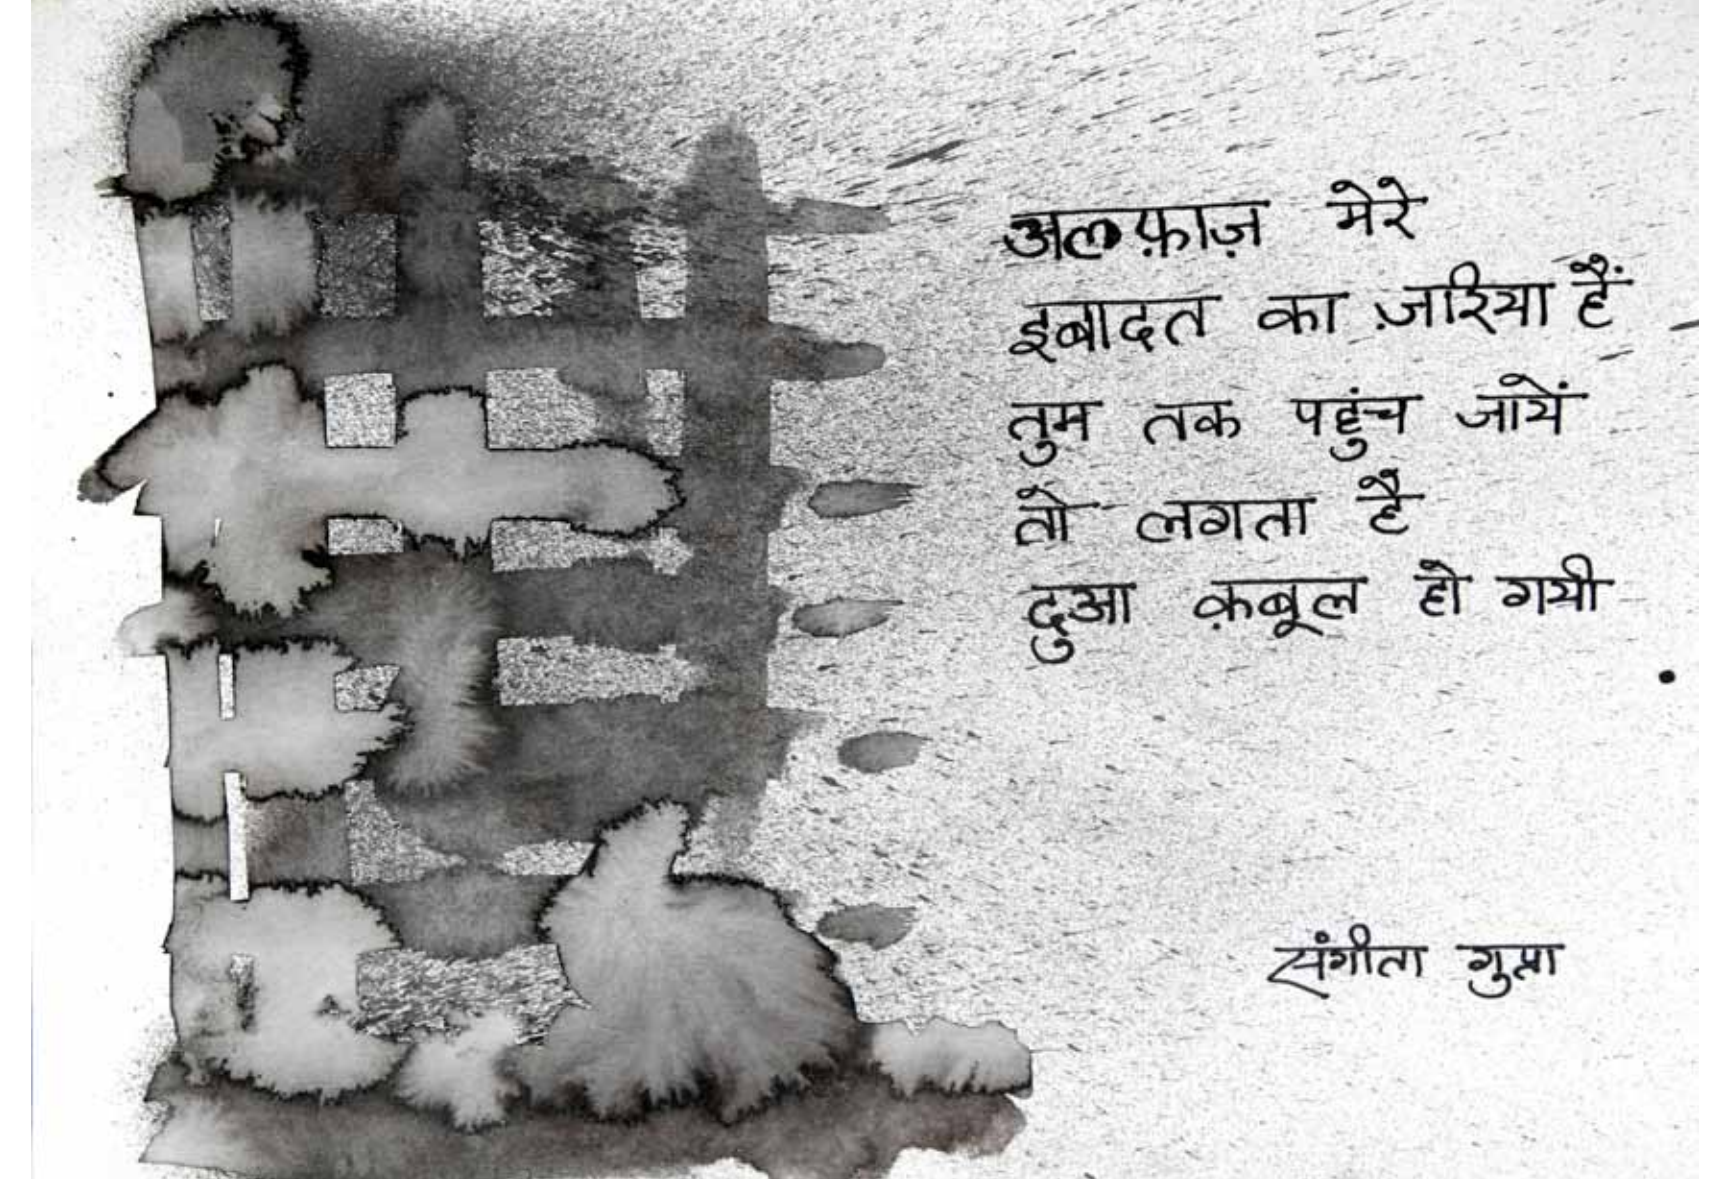 अलफ़ाज़ मेरे
इबादत का ज़रिया हैं
तुम तक पहुंच जायें
तो लगता है
दुआ क़बूल हो गयी
संगीता गुप्ता